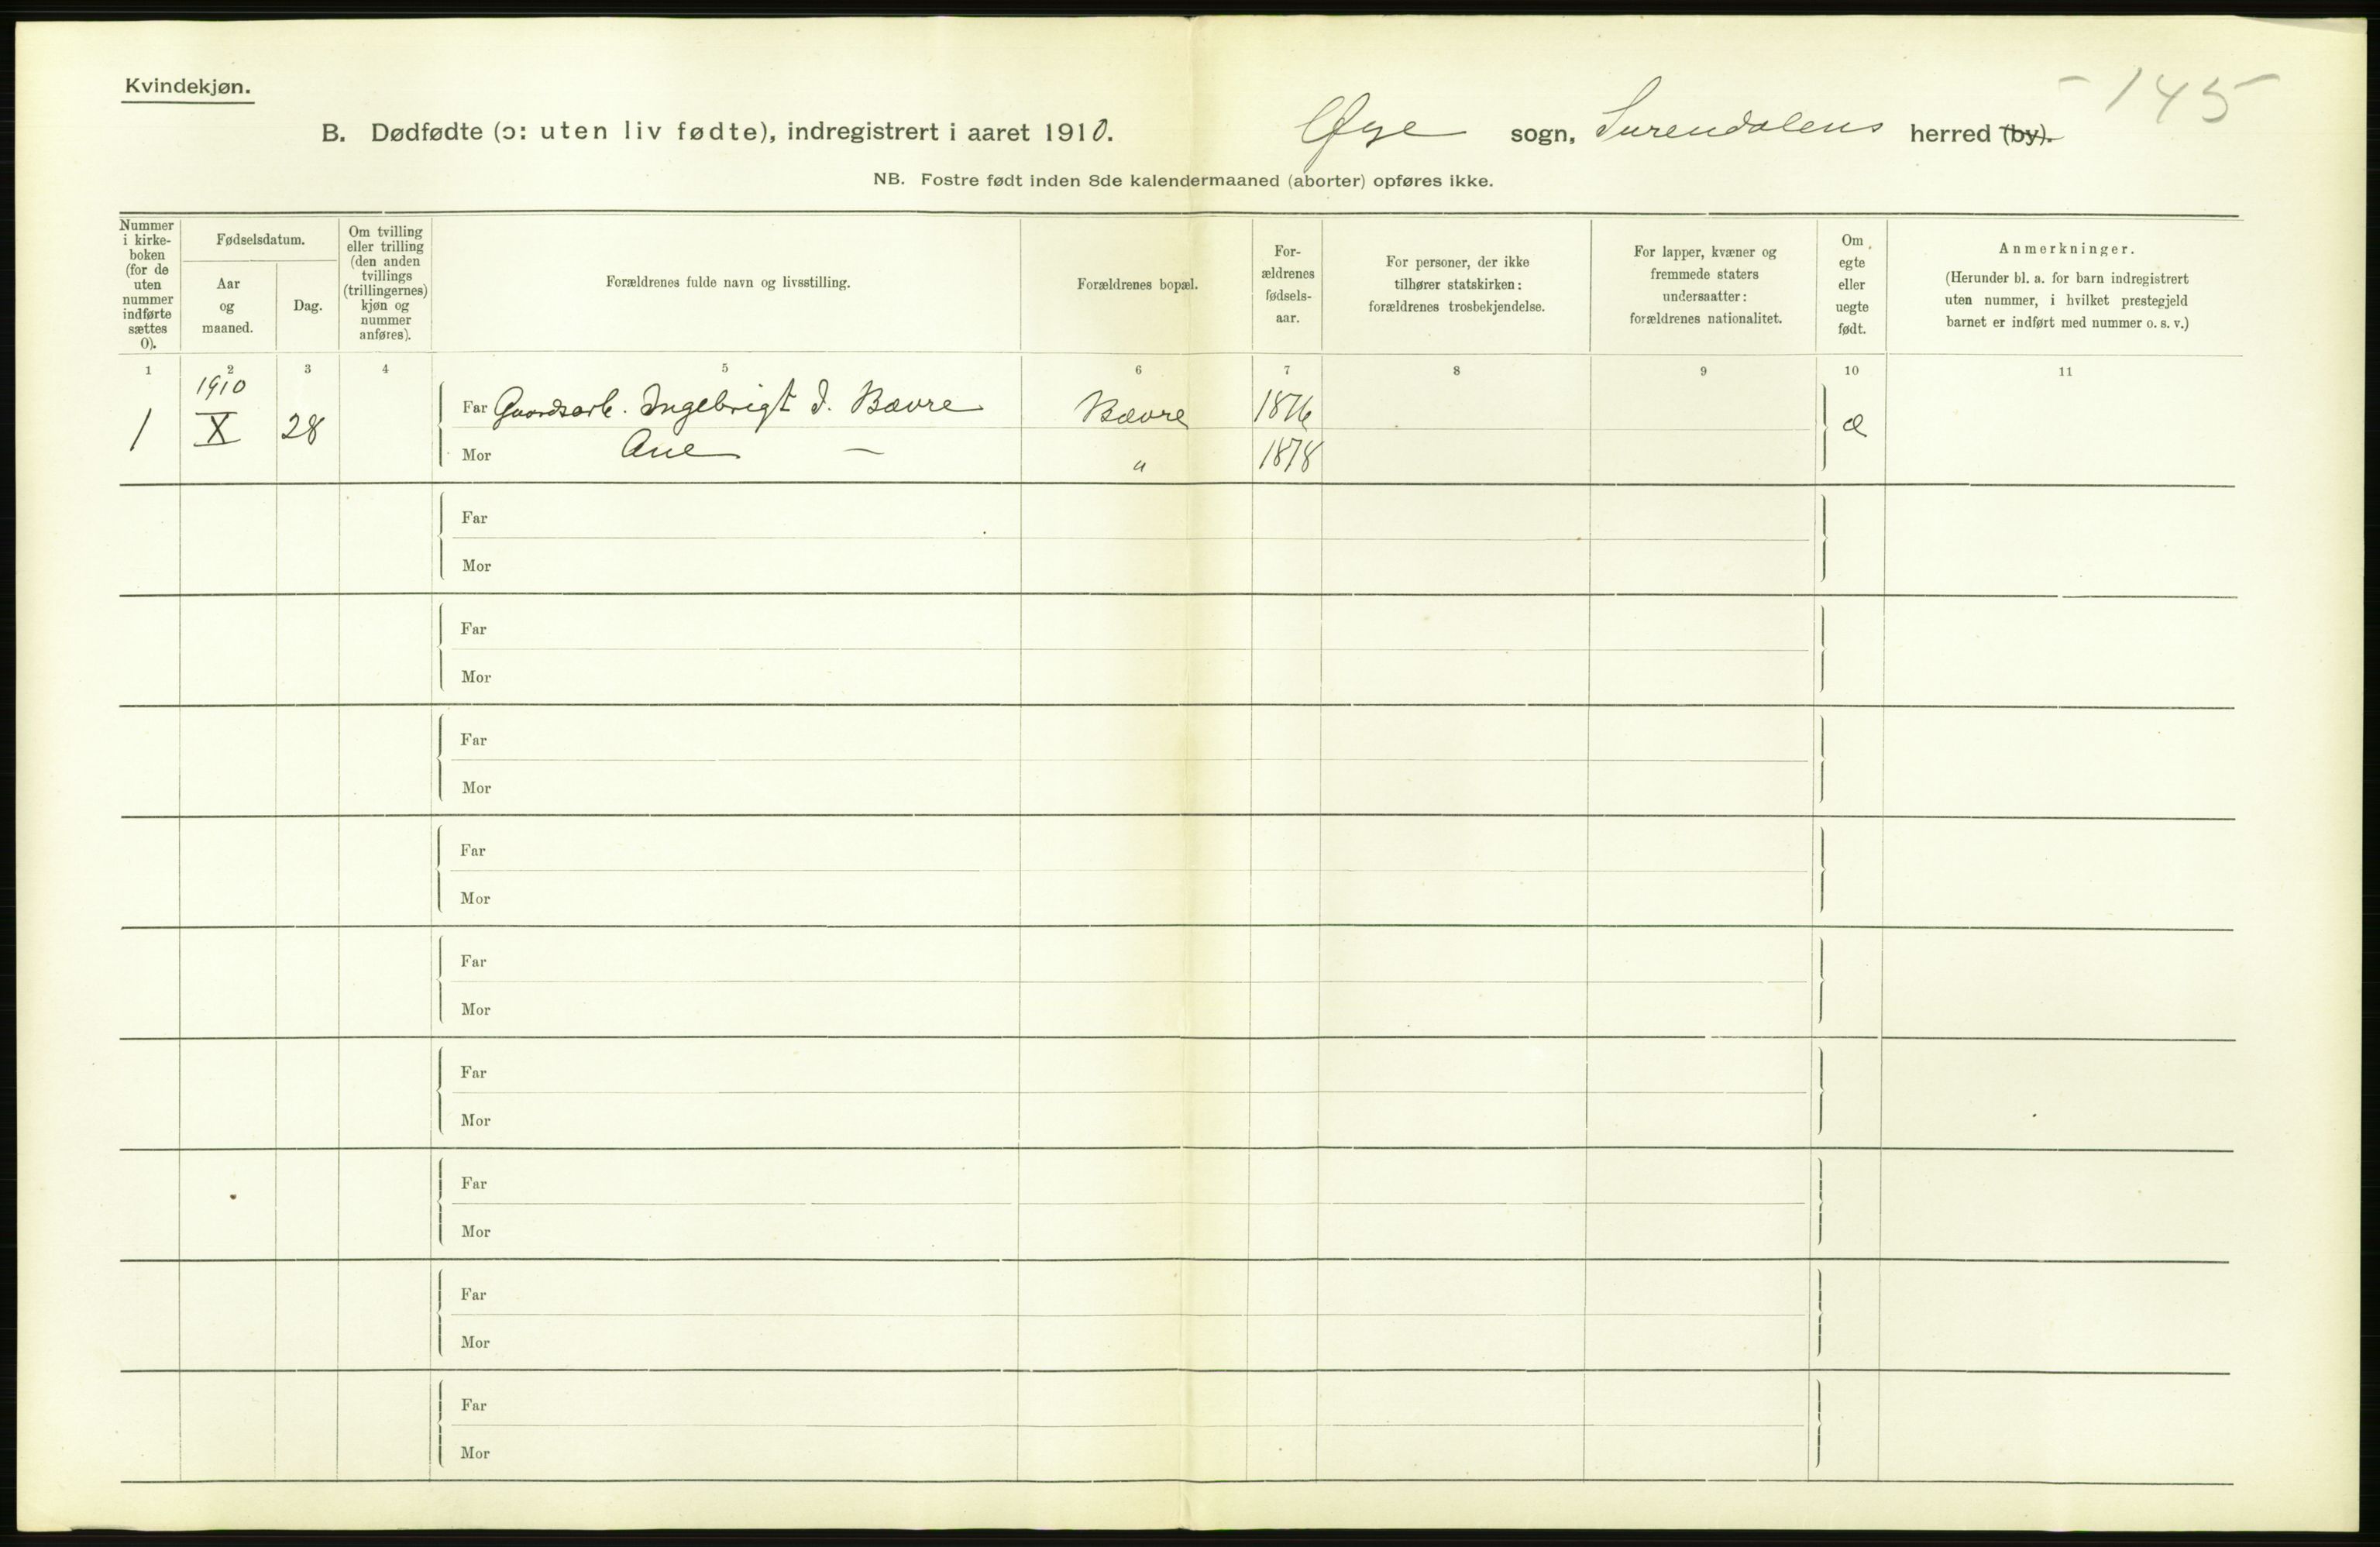 - 145
Kvindekjøn.
B. Dødfødte (ɔ: uten liv fødte), indregistrert i aaret 1910. Øye sogn, Surendalens herred (by).
NB. Fostre født inden 8de kalendermaaned (aborter) opføres ikke.
Nummer i kirke- boken (for de uten nummer indførte sættes 0).
Fødselsdatum.
Aar og maaned.
Dag.
Om tvilling eller trilling (den anden tvillings (trillingernes) kjøn og nummer anføres).
Forældrenes fulde navn og livsstilling.
Forældrenes bopæl.
For- ældrenes fødsels- aar.
For personer, der ikke tilhører statskirken: forældrenes trosbekjendelse.
For lapper, kvæner og fremmede staters undersaatter: forældrenes nationalitet.
Om egte eller uegte født.
Anmerkninger.
(Herunder bl. a. for barn indregistrert uten nummer, i hvilket prestegjeld barnet er indført med nummer o. s. v.)
1 2 3 4 5 6 7 8 9 10 11
1910
1 X 28 Far Gaardsarb. Ingebrigt I. Bævre Bævre 1876 æ
Mor Ane — " 1878
Far
Mor
Far
Mor
Far
Mor
Far
Mor
Far
Mor
Far
Mor
Far
Mor
Far
Mor
Far
Mor